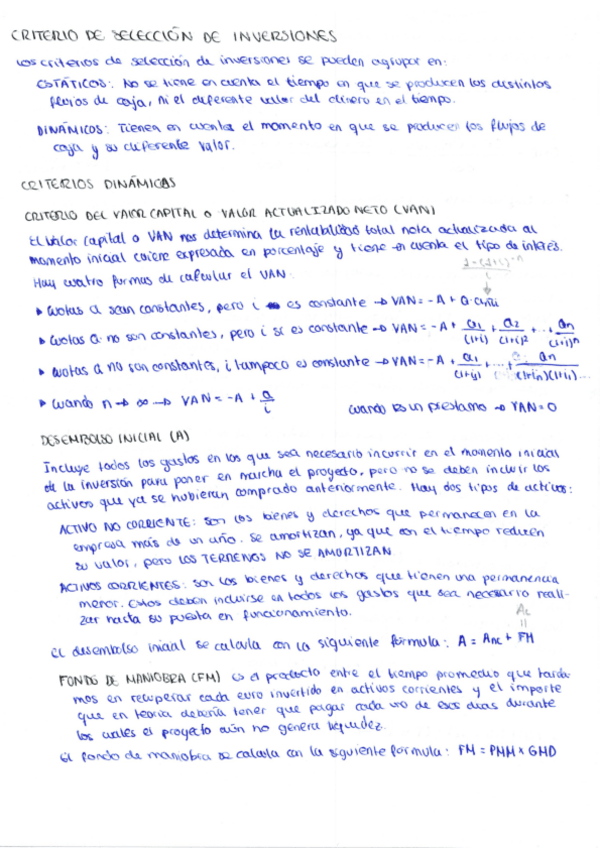 CRITERIO DE SELECCIÓN DE INVERSIONES
Los criterios de selección de inversiones se pueden agrupar en:
ESTÁTICOS: No se tiene en cuenta el tiempo en que se producen los distintos
flujos de caja, ni el diferente valor del dinero en el tiempo.
DINÁMICOS: Tienen en cuenta el momento en que se producen los flujos de
caja y su diferente valor.
CRITERIOS DINÁMICOS
CRITERIO DEL VALOR CAPITAL o VALOR ACTUALIZADO NETO (VAN)
El valor capital o VAN nos determina la rentabilidad total nota actualizada al
momento inicial viene expresada en porcentaje y tiene en cuenta el tipo de interés.
Hay cuatro formas de calcular el VAN:
1-(1+i)^-n
i
▸ cuotas a sean constantes, pero i es constante → VAN = -A + a·an¬i
▸ cuotas a no son constantes, pero i si es constante → VAN = -A + a1/(1+i) + a2/(1+i)² + ... + an/(1+i)^n
▸ cuotas a no son constantes, i tampoco es constante → VAN = -A + a1/(1+i1) + ... + an/(1+in)(1+i1)...
▸ cuando n → ∞ → VAN = -A + a/i cuando es un préstamo → VAN = 0
DESEMBOLSO INICIAL (A)
Incluye todos los gastos en los que sea necesario incurrir en el momento inicial
de la inversión para poner en marcha el proyecto, pero no se deben incluir los
activos que ya se hubieran comprado anteriormente. Hay dos tipos de activos:
ACTIVO NO CORRIENTE: son los bienes y derechos que permanecen en la
empresa más de un año. Se amortizan, ya que con el tiempo reducen
su valor, pero LOS TERRENOS NO SE AMORTIZAN.
ACTIVOS CORRIENTES: son los bienes y derechos que tienen una permanencia
menor. Estos deben incluirse en todos los gastos que sea necesario reali-
zar hasta su puesta en funcionamiento.
Ac
=
El desembolso inicial se calcula con la siguiente fórmula: A = Anc + FM
FONDO DE MANIOBRA (FM) es el producto entre el tiempo promedio que tarda-
mos en recuperar cada euro invertido en activos corrientes y el importe
que en teoría debería tener que pagar cada uno de esos días durante
los cuales el proyecto aún no genera liquidez.
El fondo de maniobra se calcula con la siguiente fórmula: FM = PMM x GMD